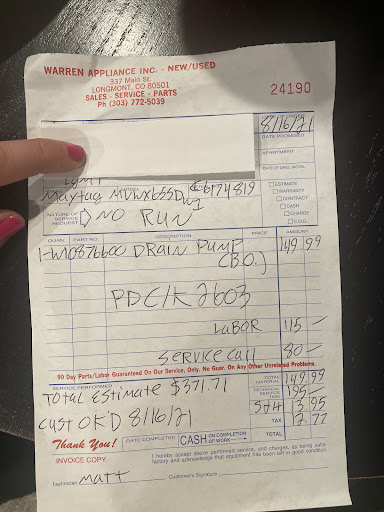 WARREN APPLIANCE INC. - NEW/USED
337 Main St.
LONGMONT, CO 80501
SALES - SERVICE - PARTS
Ph (303) 772-5039
24190
8/16/21
DATE PROMISED
APARTMENT
Maytag MVWX655DW1 C61174819
NATURE OF SERVICE REQUEST NO RUN
ESTIMATE
WARRANTY
CONTRACT
CASH
CHARGE
C.O.D.
QUAN. PART NO. DESCRIPTION PRICE AMOUNT
1-W10876600 DRAIN PUMP 149.99
(B.O.)
PDC/K 2603
LABOR 115 -
Service call 80 -
90 Day Parts/Labor Guaranteed On Our Service, Only. No Guar. On Any Other Unrelated Problems.
SERVICE PERFORMED
TOTAL MATERIAL 149.99
Total Estimate $371.71
TECHNICAL SERVICE TIME 195 -
S+H 13.95
Cust OK'D 8/16/21
TAX 12.77
Thank You!
DATE COMPLETED
CASH ON COMPLETION OF WORK
TOTAL
INVOICE COPY
I hereby accept above performed service, and charges, as being satisfactory and acknowledge that equipment has been left in good condition.
Technician Matt
Customer's Signature